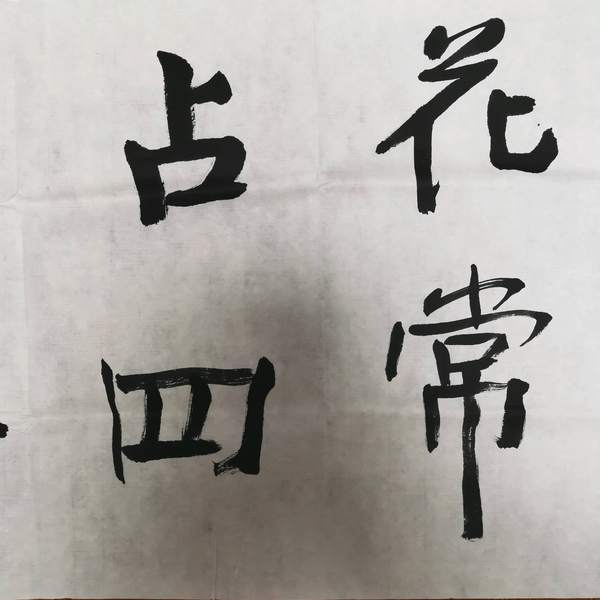 花常
占四